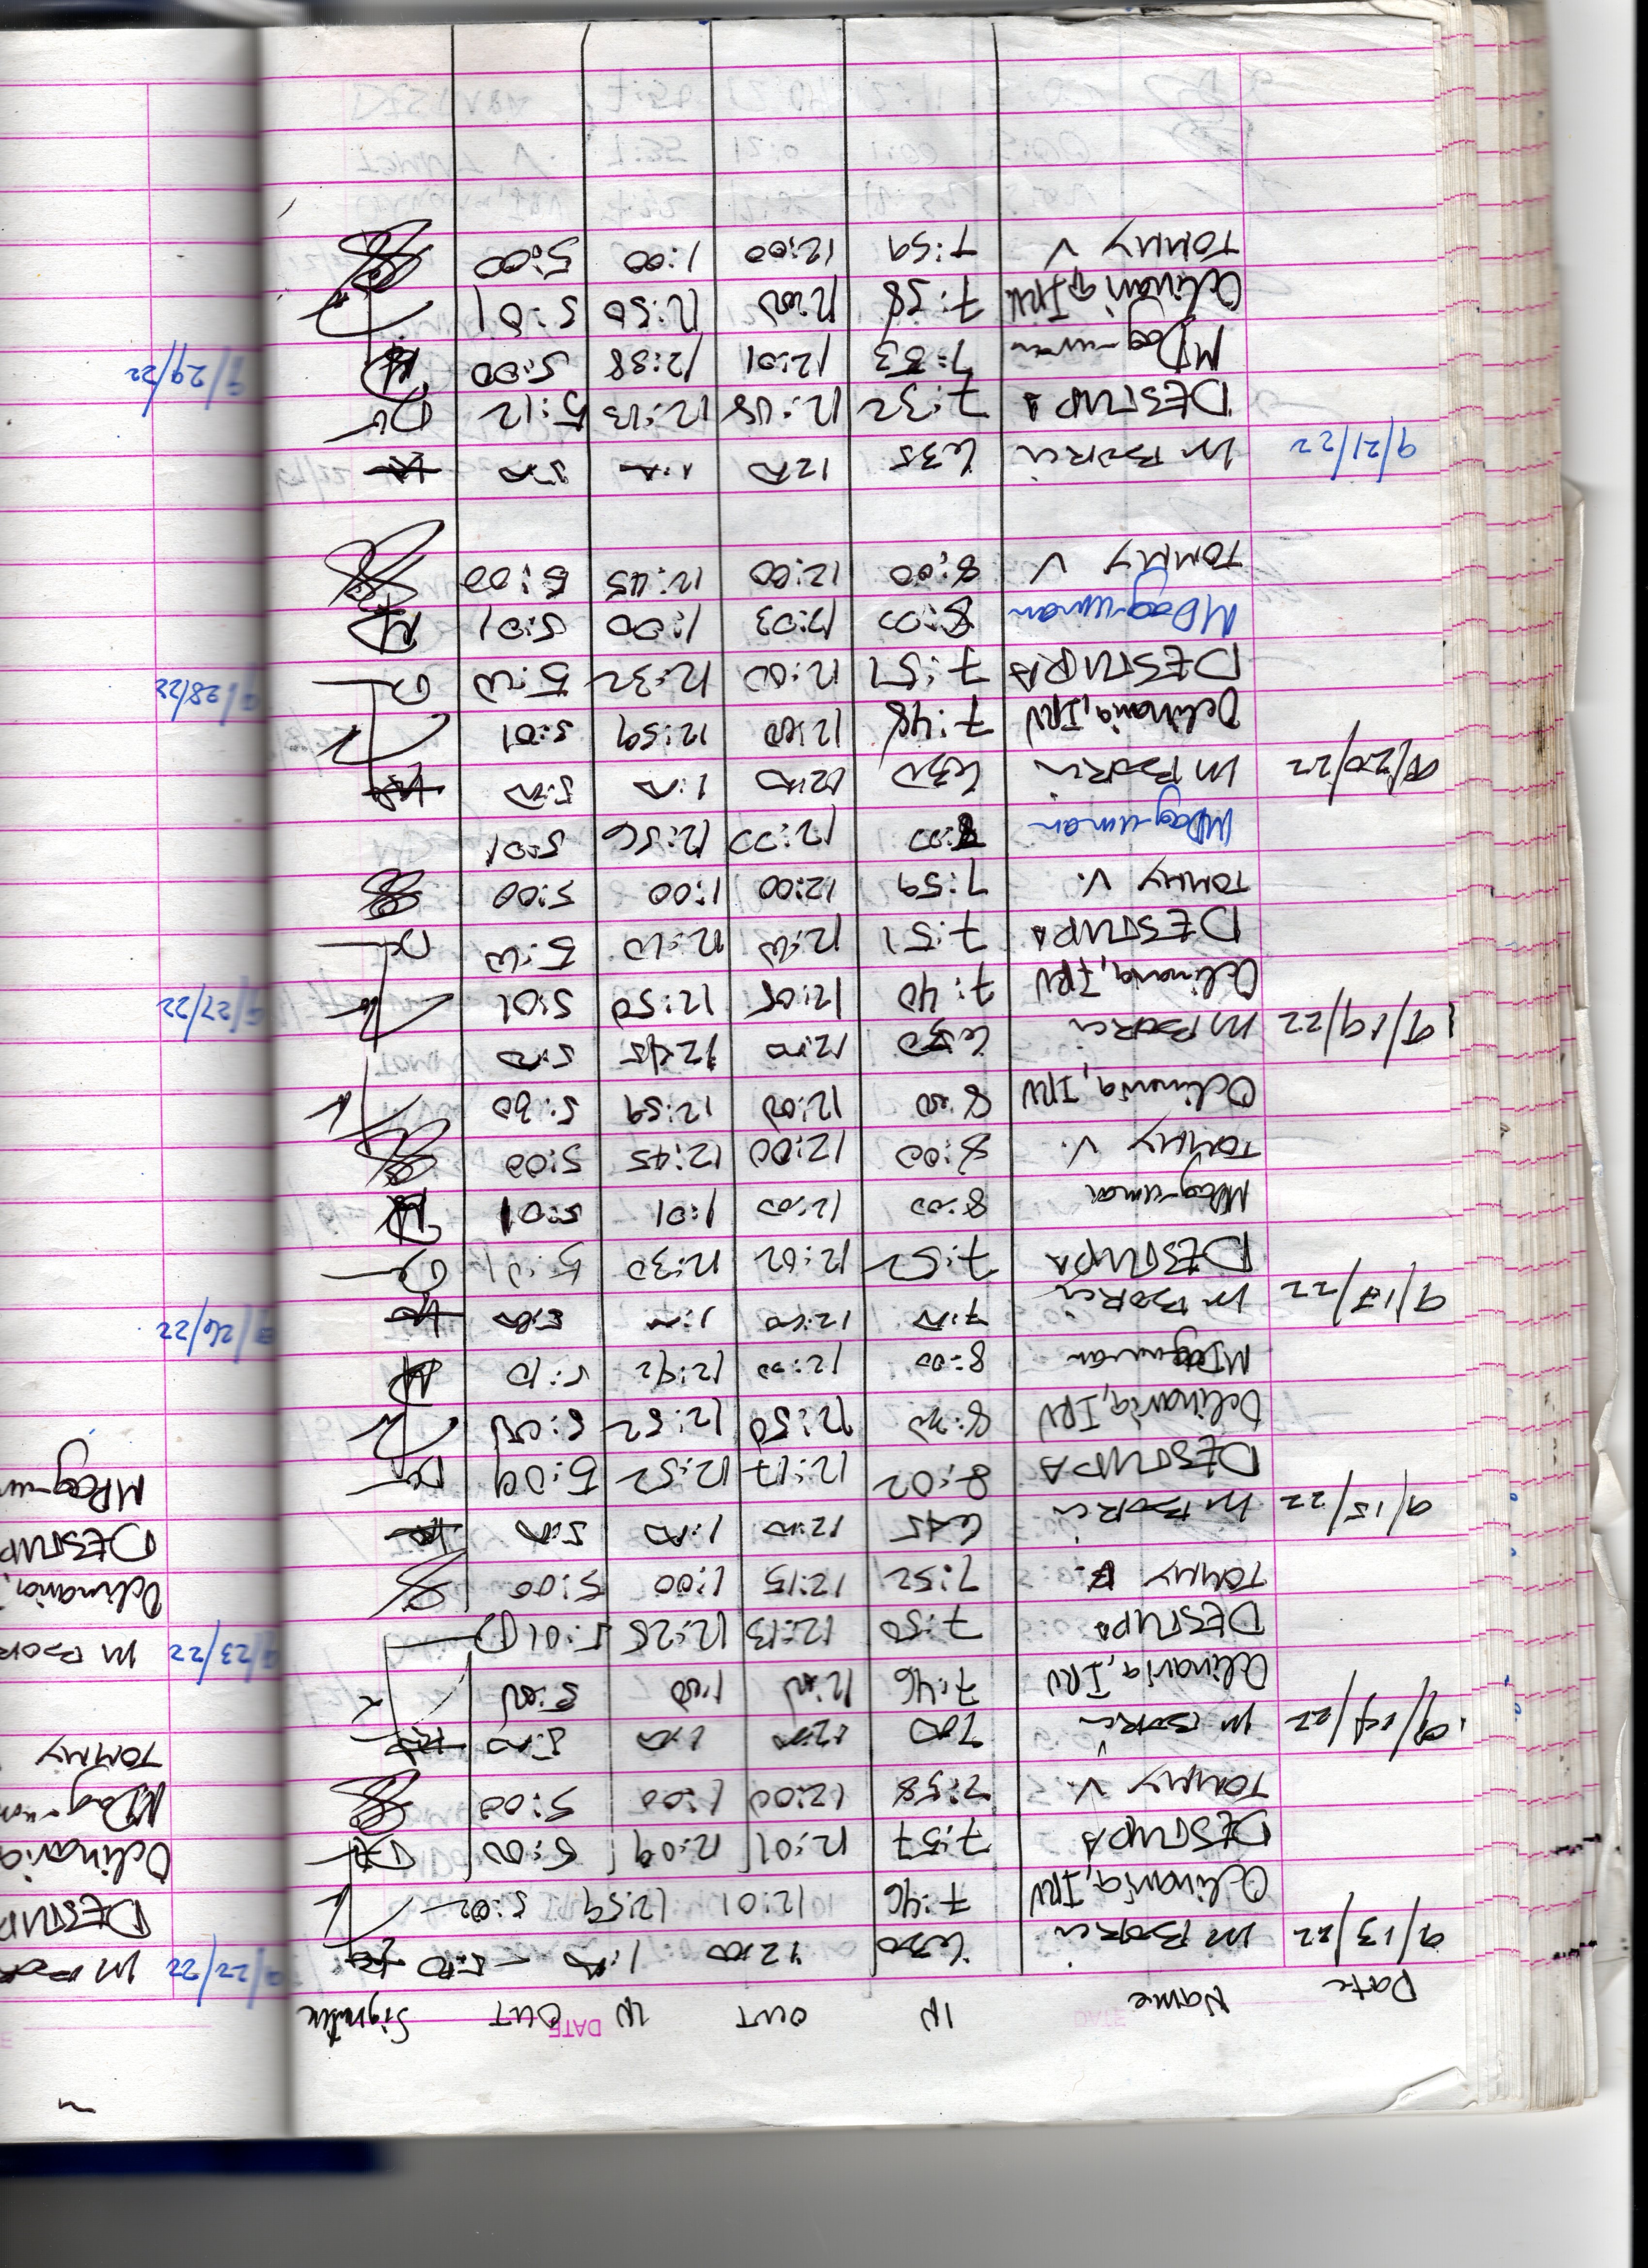 Date Name IN OUT IN OUT Signature
9/13/22 M BORCI 630 12:00 1:00 5:00
Odinaria, IRV 7:46 12:01 12:59 5:02
DESTUPA 7:57 12:01 12:09 5:00
TOMMY V. 7:58 12:00 1:00 5:00
9/14/22 M BORCI 700 1200 1:00 5:00
Odinaria, IRV 7:46 12:00 1:00 5:00
DESTUPA 7:50 12:13 12:28 5:01
TOMMY 7:52 12:15 1:00 5:00
9/15/22 M BORCI 645 12:00 1:00 5:00
DESTUPA 8:02 12:17 12:52 5:09
Odinaria, IRV 8:00 12:50 12:52 5:05
MDag-uman 8:00 12:00 12:42 5:10
9/17/22 M BORCI 7:00 12:00 1:00 5:00
DESTUPA 7:52 12:02 12:30 5:01
MDag-uman 8:00 12:00 1:01 5:01
TOMMY V. 8:00 12:00 12:45 5:00
Odinaria, IRV 8:00 12:00 12:59 5:00
9/19/22 M BORCI 630 12:00 12:45 5:00
Odinaria, IRV 7:40 12:05 12:50 5:01
DESTUPA 7:51 12:10 12:10 5:10
TOMMY V. 7:59 12:00 1:00 5:00
MDag-uman 8:00 12:00 12:56 5:01
9/20/22 M BORCI 630 12:00 1:00 5:00
Odinaria, IRV 7:48 12:00 12:59 5:01
DESTUPA 7:57 12:00 12:32 5:00
MDag-uman 8:00 12:03 1:00 5:01
TOMMY V 8:00 12:00 12:45 5:00
9/21/22 M BORCI 635 1200 1:00 5:00
DESTUPA 7:32 12:08 12:13 5:12
MDag-uman 7:53 12:01 12:38 5:00
Odinaria, IRV 7:58 12:00 12:50 5:01
TOMMY V 7:59 12:00 1:00 5:00
9/22/22 M BOR
DESTUP
Odinaria
MDag-um
TOMMY
9/23/22 M BOR
Odinaria,
DESTUP
MDag-un
9/26/22
9/27/22
9/28/22
9/29/22